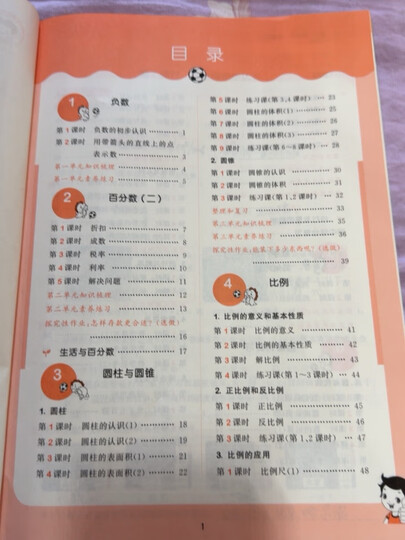 目录
1 负数
第1课时 负数的初步认识 ………… 1
第2课时 用带箭头的直线上的点
表示数 ………… 3
第一单元知识梳理 ………… 4
第一单元素养练习 ………… 5
2 百分数(二)
第1课时 折扣 ………… 7
第2课时 成数 ………… 8
第3课时 税率 ………… 9
第4课时 利率 ………… 10
第5课时 解决问题 ………… 11
第二单元知识梳理 ………… 12
第二单元素养练习 ………… 13
探究性作业,怎样存款更合适?(选做)
………… 16
生活与百分数 ………… 17
3 圆柱与圆锥
1. 圆柱
第1课时 圆柱的认识(1) ………… 18
第2课时 圆柱的认识(2) ………… 19
第3课时 圆柱的表面积(1) ………… 21
第4课时 圆柱的表面积(2) ………… 22
第5课时 练习课(第3、4课时) … 23
第6课时 圆柱的体积(1) ………… 25
第7课时 圆柱的体积(2) ………… 26
第8课时 圆柱的体积(3) ………… 27
第9课时 练习课(第6~8课时) … 28
2. 圆锥
第1课时 圆锥的认识 ………… 30
第2课时 圆锥的体积 ………… 31
第3课时 练习课(第1、2课时) … 32
整理和复习 ………… 33
第三单元知识梳理 ………… 35
第三单元素养练习 ………… 36
………… 39
4 比例
1. 比例的意义和基本性质
第1课时 比例的意义 ………… 41
第2课时 比例的基本性质 ………… 42
第3课时 解比例 ………… 43
第4课时 练习课(第1~3课时) … 44
2. 正比例和反比例
第1课时 正比例 ………… 45
第2课时 反比例 ………… 46
第3课时 练习课(第1、2课时) … 47
3. 比例的应用
第1课时 比例尺(1) ………… 48
1